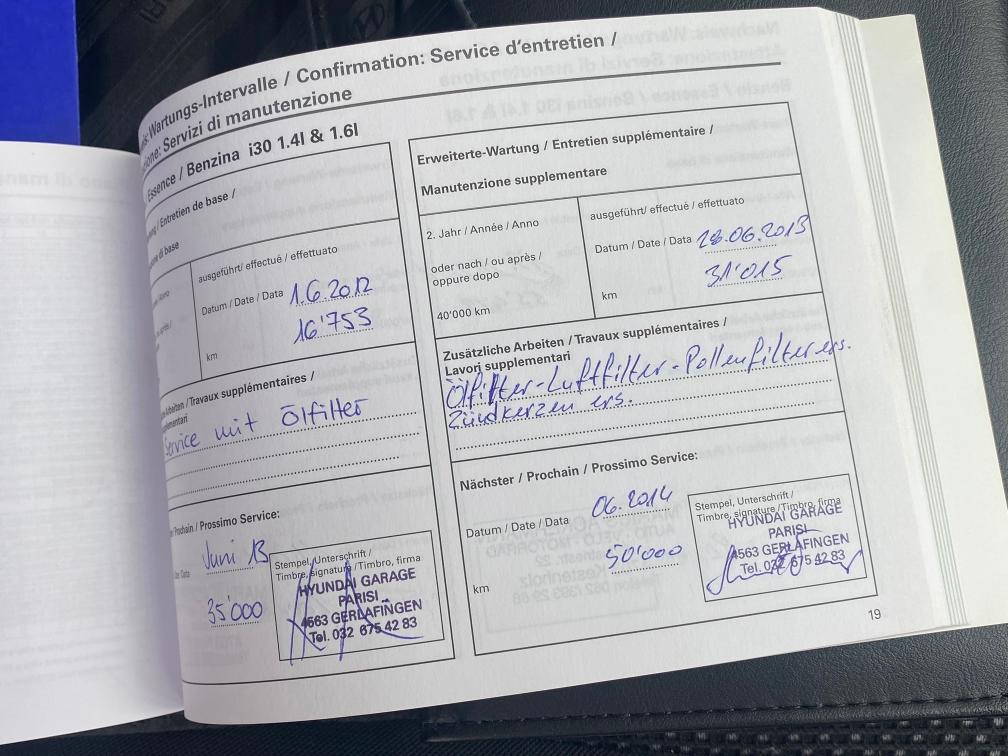 Wartungs-Intervalle / Confirmation: Service d'entretien /
Servizi di manutenzione
Essence / Benzina i30 1.4l & 1.6l
/ Entretien de base /
di base
ausgeführt/ effectué / effettuato
Datum / Date / Data 1.6.2012
16'753
km
Arbeiten / Travaux supplémentaires /
Service mit Ölfilter
/ Prochain / Prossimo Service:
Data Juni 13
35'000
Stempel, Unterschrift /
Timbre, signature / Timbro, firma
HYUNDAI GARAGE
PARISI
4563 GERLAFINGEN
Tel. 032 675 42 83
Erweiterte-Wartung / Entretien supplémentaire /
Manutenzione supplementare
2. Jahr / Année / Anno
oder nach / ou après /
oppure dopo
40'000 km
ausgeführt/ effectué / effettuato
Datum / Date / Data 28.06.2013
31'015
km
Zusätzliche Arbeiten / Travaux supplémentaires /
Lavori supplementari
Ölfilter-Luftfilter-Pollenfilter ers.
Zündkerzen ers.
Nächster / Prochain / Prossimo Service:
Datum / Date / Data 06.2014
km 50'000
Stempel, Unterschrift /
Timbre, signature / Timbro, firma
HYUNDAI GARAGE
PARISI
4563 GERLAFINGEN
Tel. 032 675 42 83
19